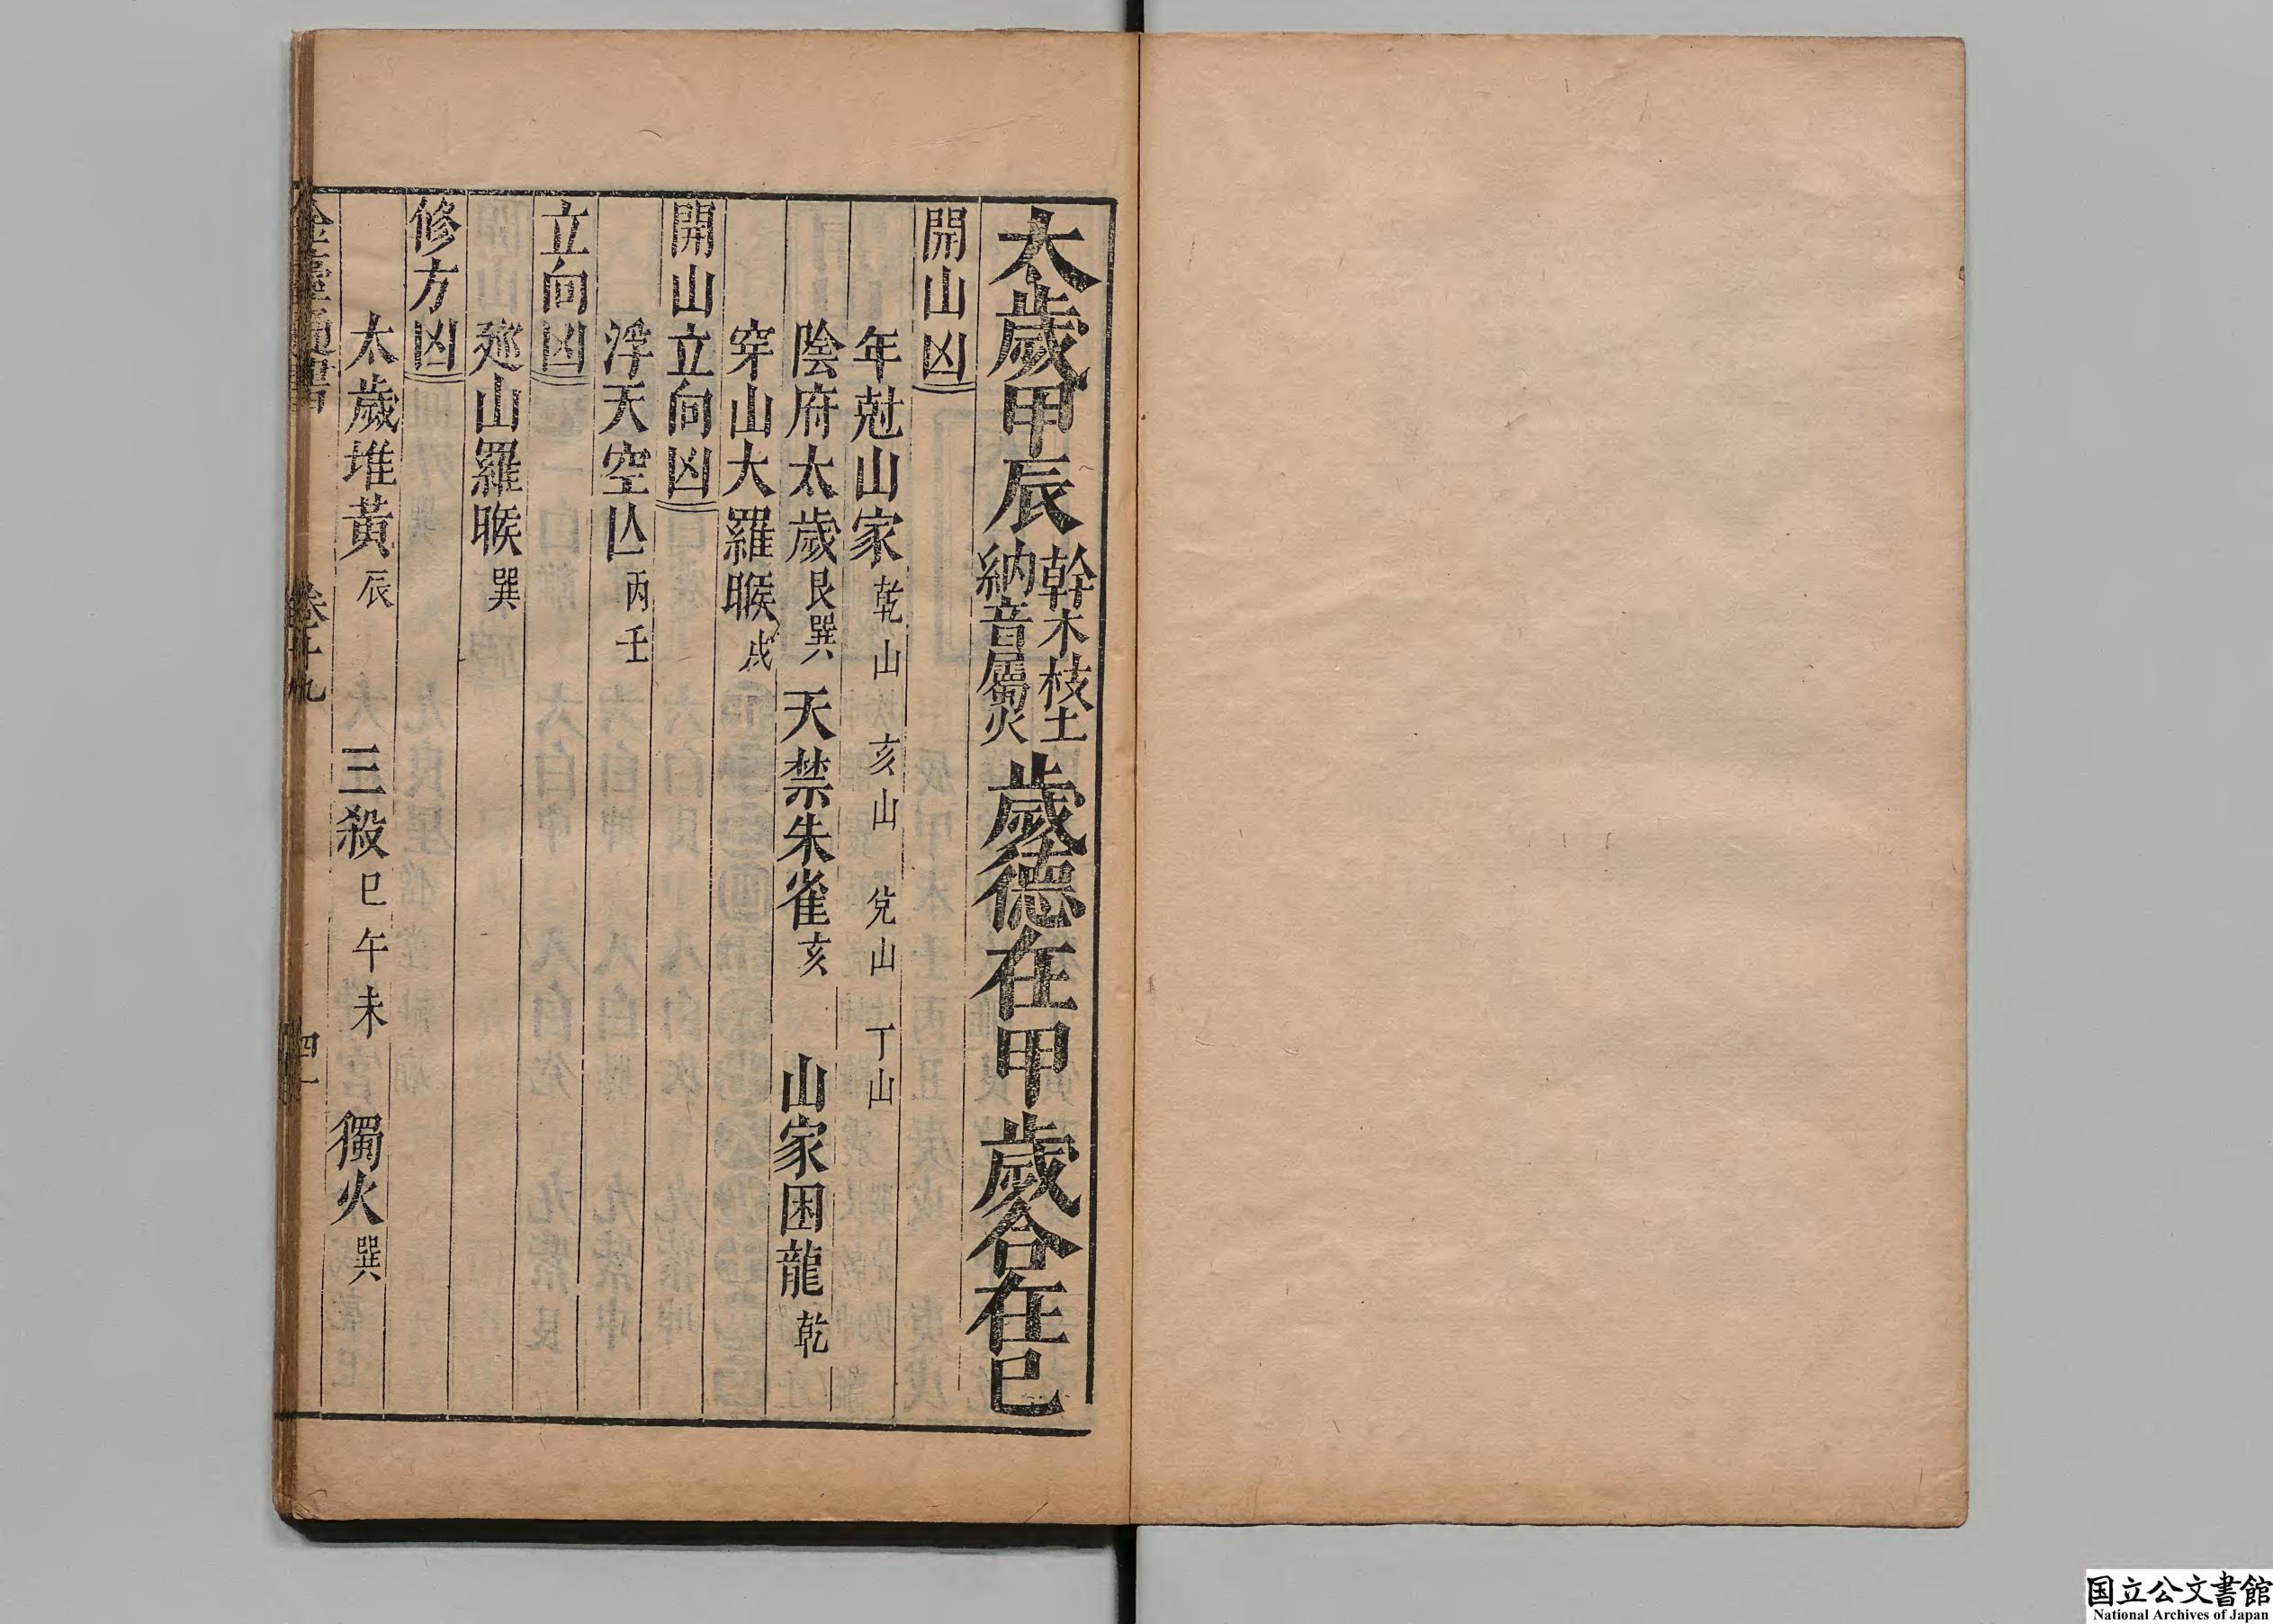 太歲甲辰 幹木枝土 納音屬火 歲德在甲 歲合在巳
開山凶
年尅山家 乾山 亥山 兌山 丁山
陰府太歲 艮巽 天禁朱雀 亥 山家困龍 乾
穿山大羅睺 戌
開山立向凶
浮天空亾 丙壬
立向凶
廵山羅睺 巽
修方凶
太歲堆黃 辰 三殺 巳午未 獨火 巽
卷十九 四一
国立公文書館
National Archives of Japan